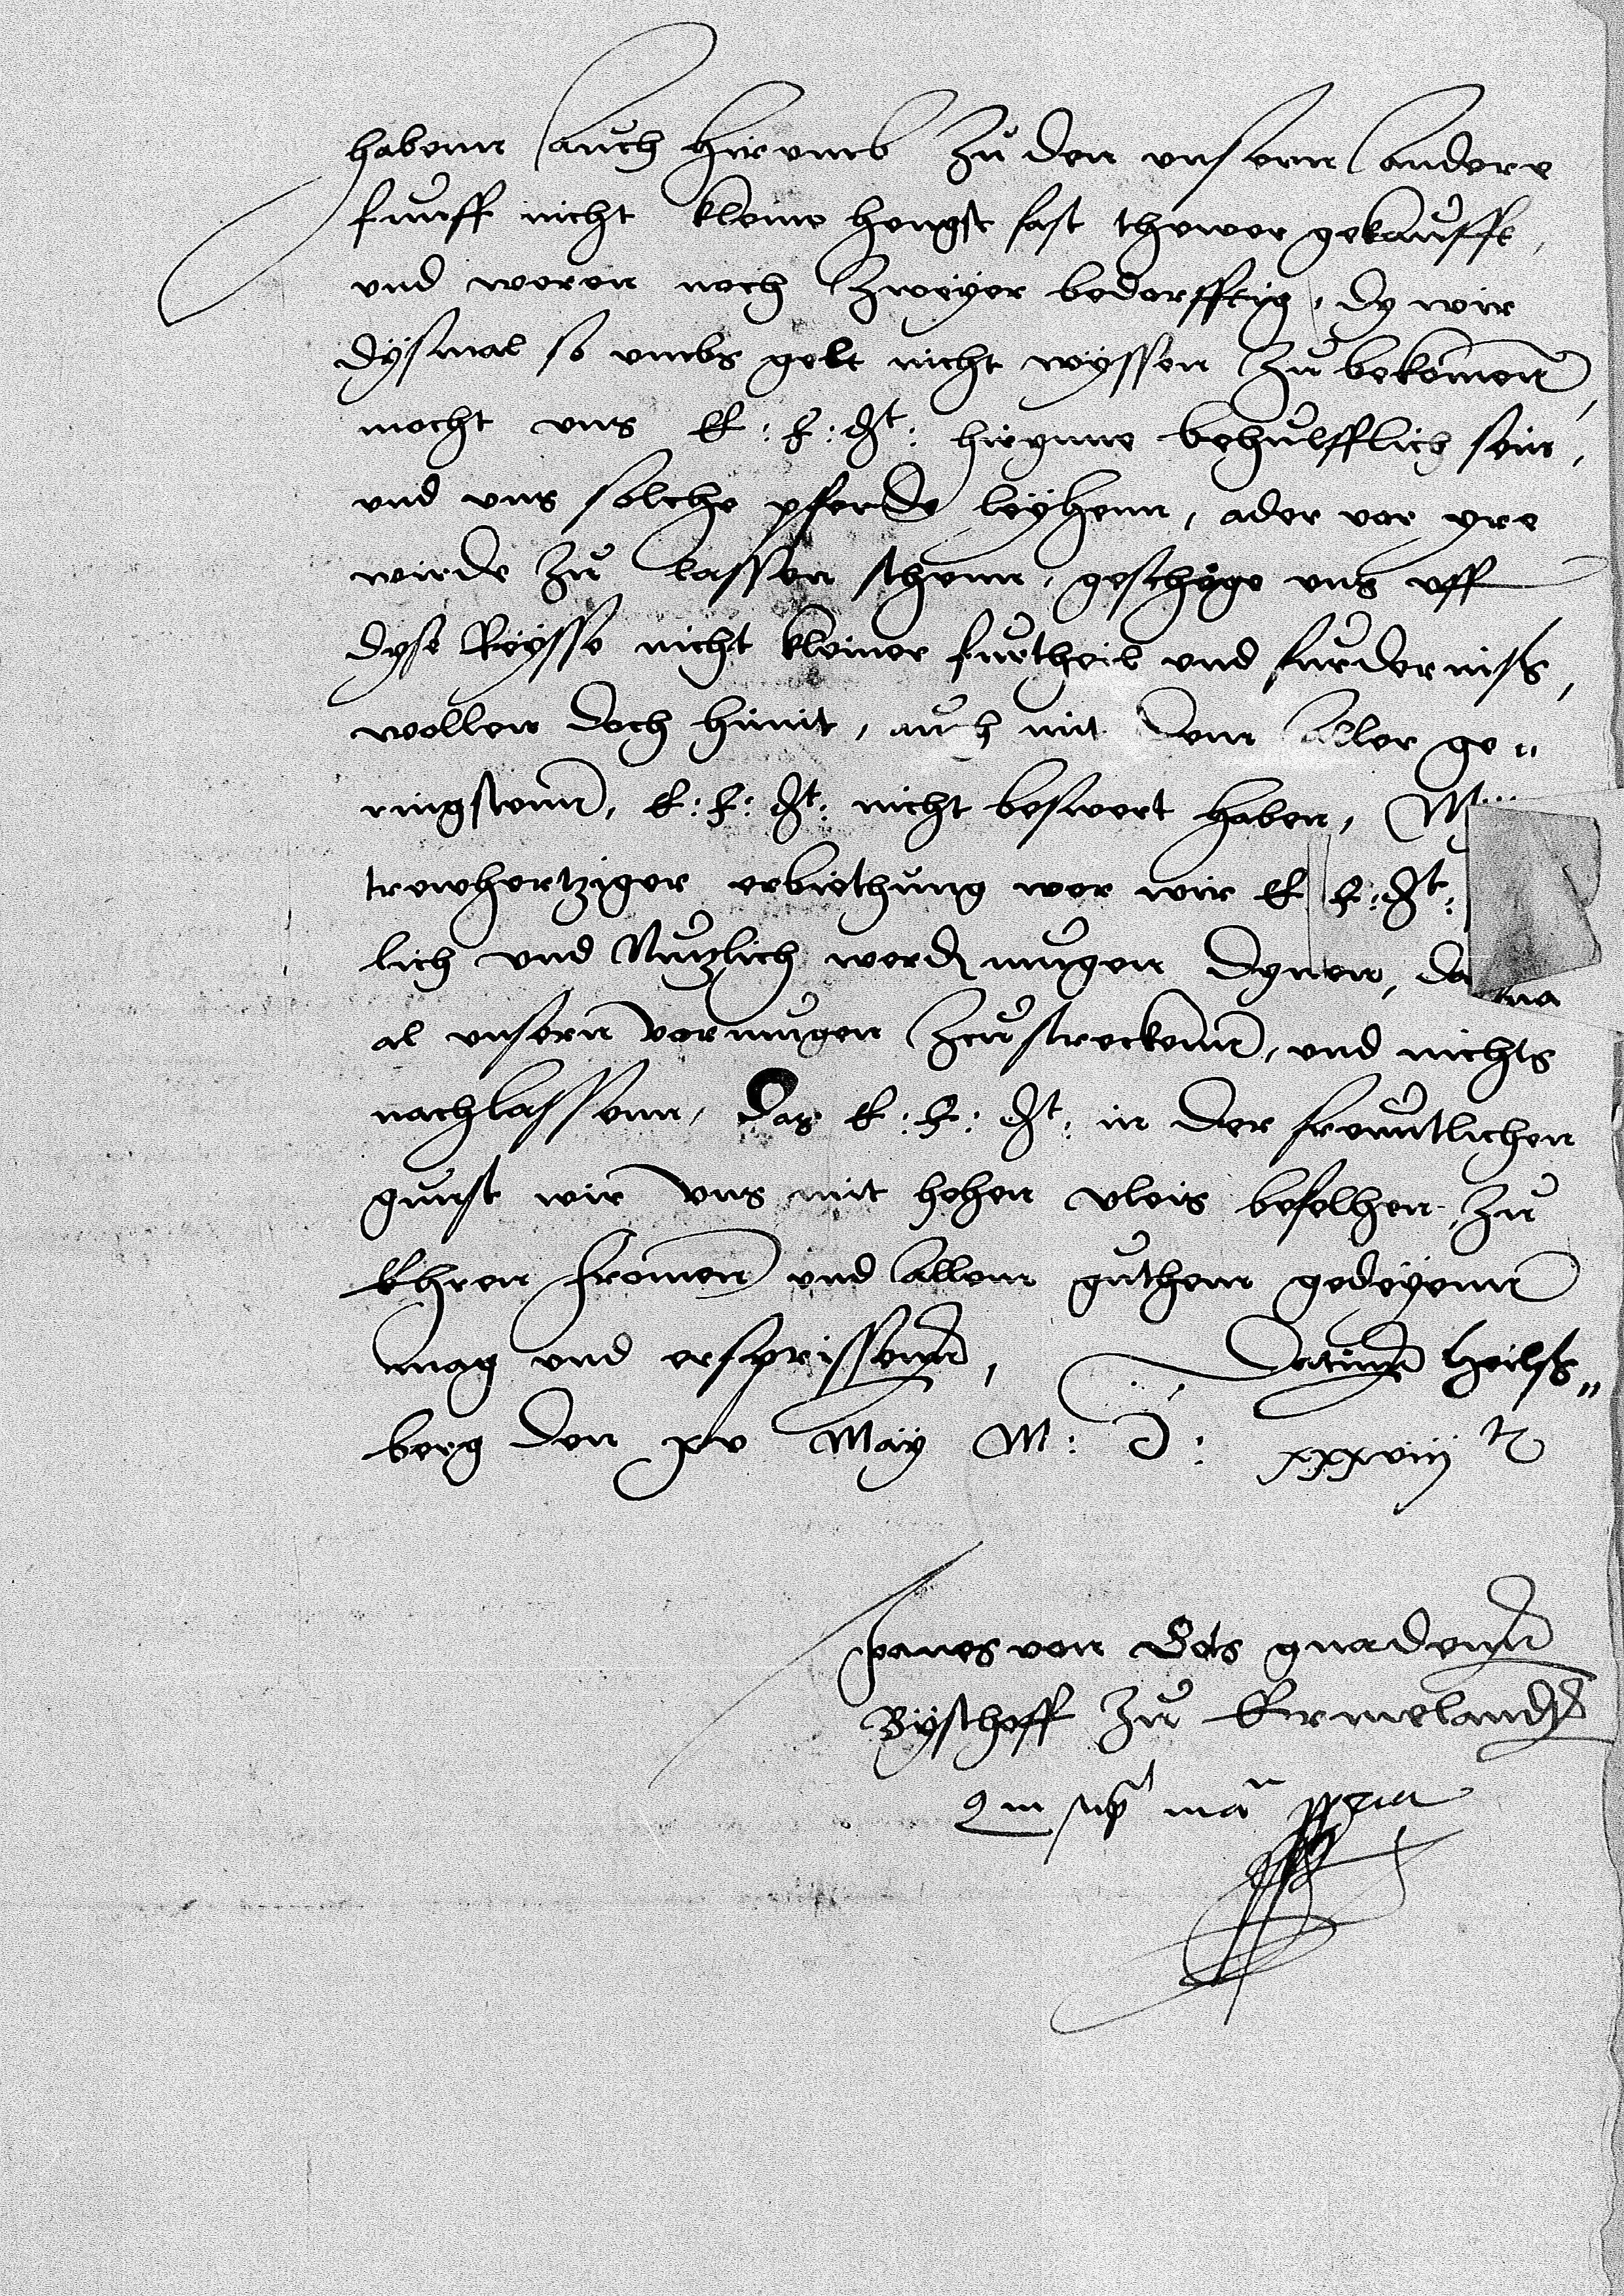 habenn auch hirumb zu den unsern andere
funff nicht kleine hengst fast thewer gekaufft,
und weren noch zweyer bedorfftig, dy wir
dysmal so umbs gelt nicht wyssen zu bekomen,
mocht uns E: F: Gt: hirynne behulfflich sein,
und uns solche pferde leyhenn, ader vor yre
wirde zu lassen sthenn, geschege uns uff
dyse Reysse nicht kleiner furtheil und furderniss,
wollen doch himit, auch mit dem aller ge„
ringstenn, E: F: Gt: nicht beswert haben,
trewhertziger erbiethung wor wir E F: Gt:
lich und Nutzlich werden mugen dynen,
al unsern vormugen zcustreckenn, und nichts
nachlassenn, Das E: F: Gt: in der freuntlichen
gunst wir uns mit hohen vleis befelhen, zu
Ehren fromen und allem guthem gedeyenn
mag und ersprissenn, Datum Heilss„
berg den xv May M: D: xxxviii tn
Joannes von Gots gnadenn
Byschoff zu Ermelandt